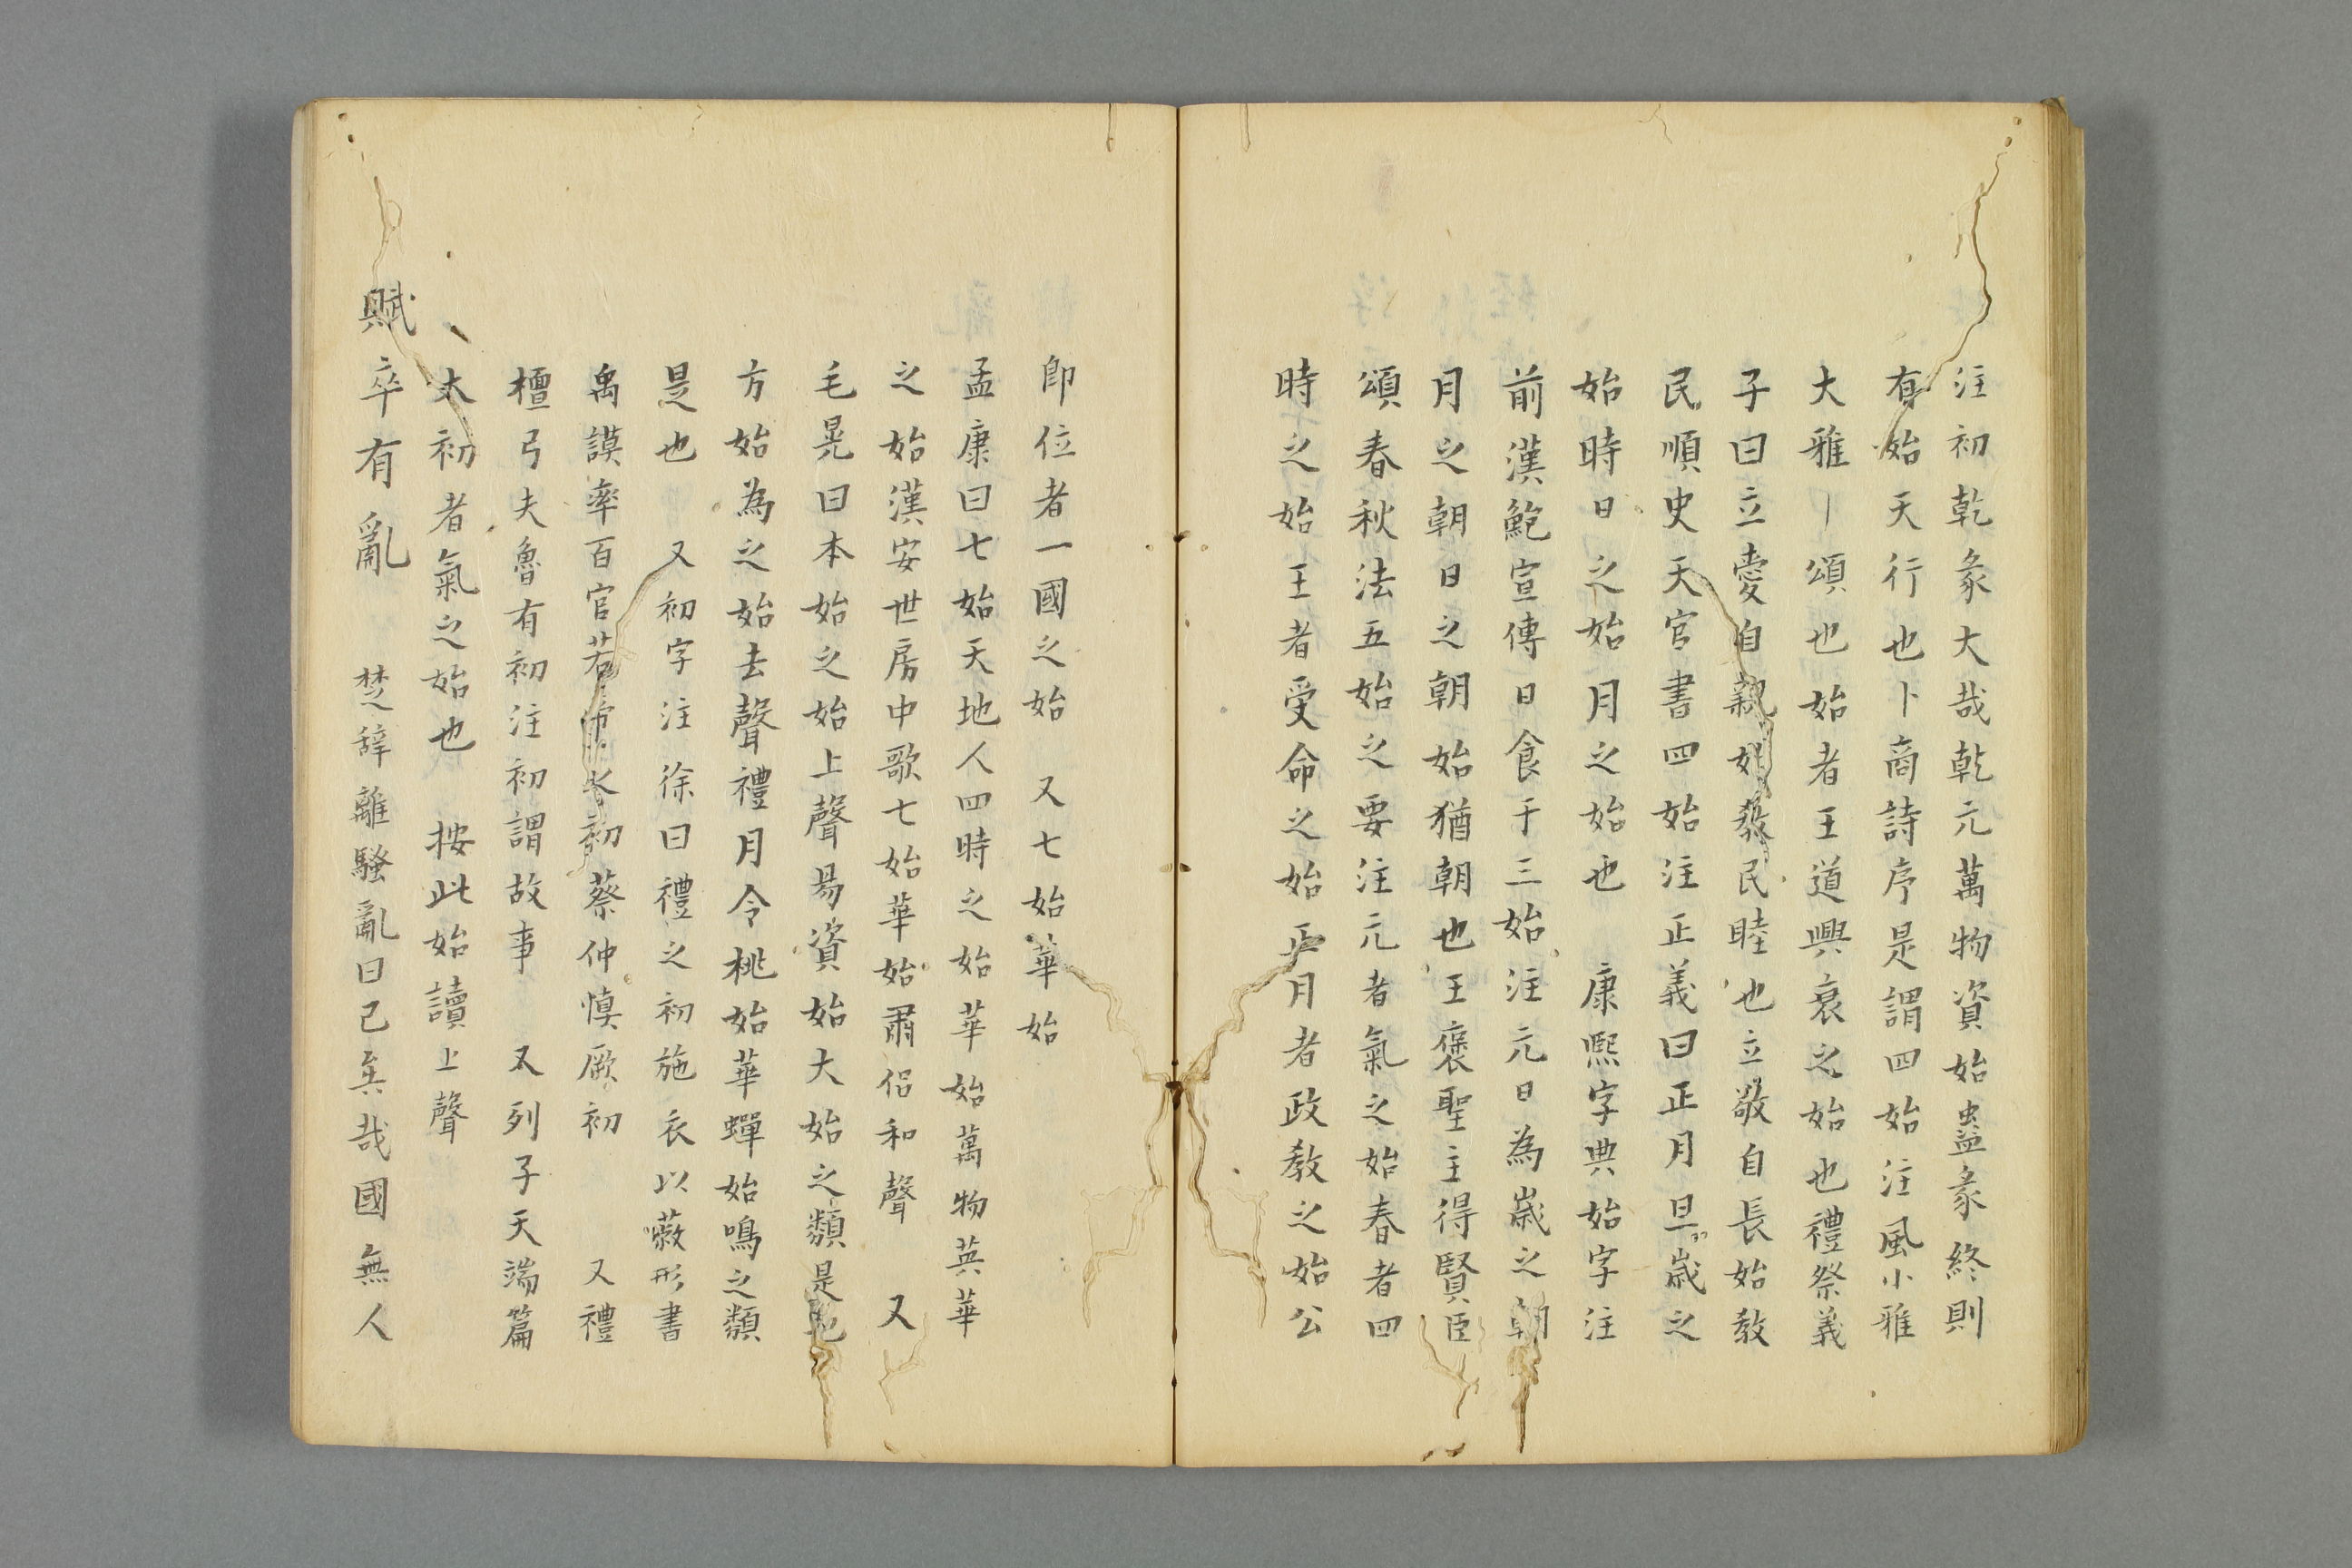 注初乾彖大哉乾元萬物資始蠱彖終則
有始天行也卜商詩序是謂四始注風小雅
大雅丨頌也始者王道興衰之始也禮祭義
子曰立愛自親始教民睦也立敬自長始教
民順史天官書四始注正義曰正月旦歲之
始時日之始月之始也 康熙字典始字注
前漢鮑宣傳日食于三始注元日為歲之朝
月之朝日之朝始猶朝也王褒聖主得賢臣
頌春秋法五始之要注元者氣之始春者四
時之始王者受命之始正月者政教之始公
卽位者一國之始 又七始華始
孟康曰七始天地人四時之始華始萬物英華
之始漢安世房中歌七始華始肅侣和聲 又
毛晃曰本始之始上聲易資始大始之類是也
方始為之始去聲禮月令桃始華蟬始鳴之類
是也 又初字注徐曰禮之初施衣以蔽形書
禹謨率百官若帝之初蔡仲慎厥初 又禮
檀弓夫魯有初注初謂故事 又列子天端篇
太初者氣之始也 按此始讀上聲
賦卒有亂 楚辞離騷亂曰已矣哉國無人